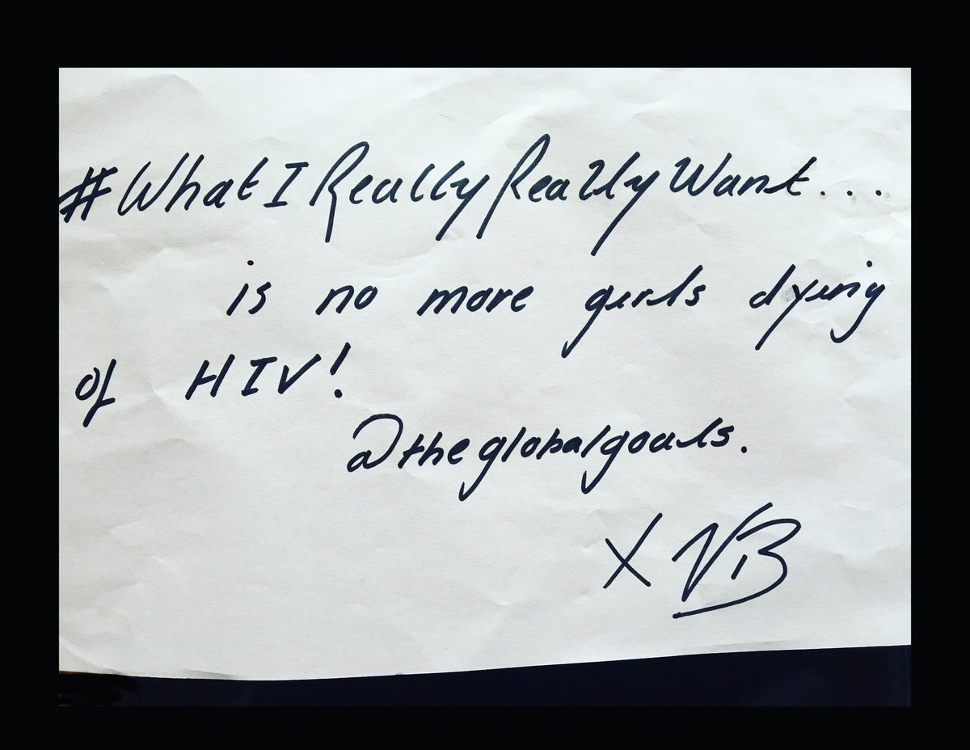 #WhatIReallyReallyWant...
is no more girls dying
of HIV!
@theglobalgoals.
X VB